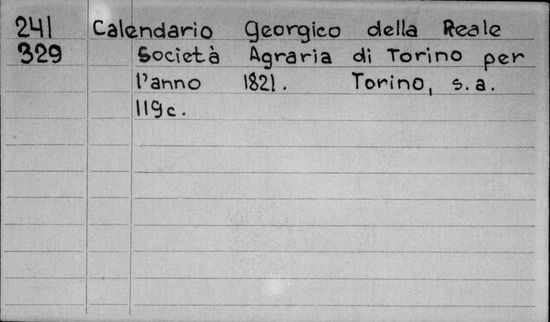 241 Calendario Georgico della Reale
329 Società Agraria di Torino per
l'anno 1821. Torino, s.a.
119c.